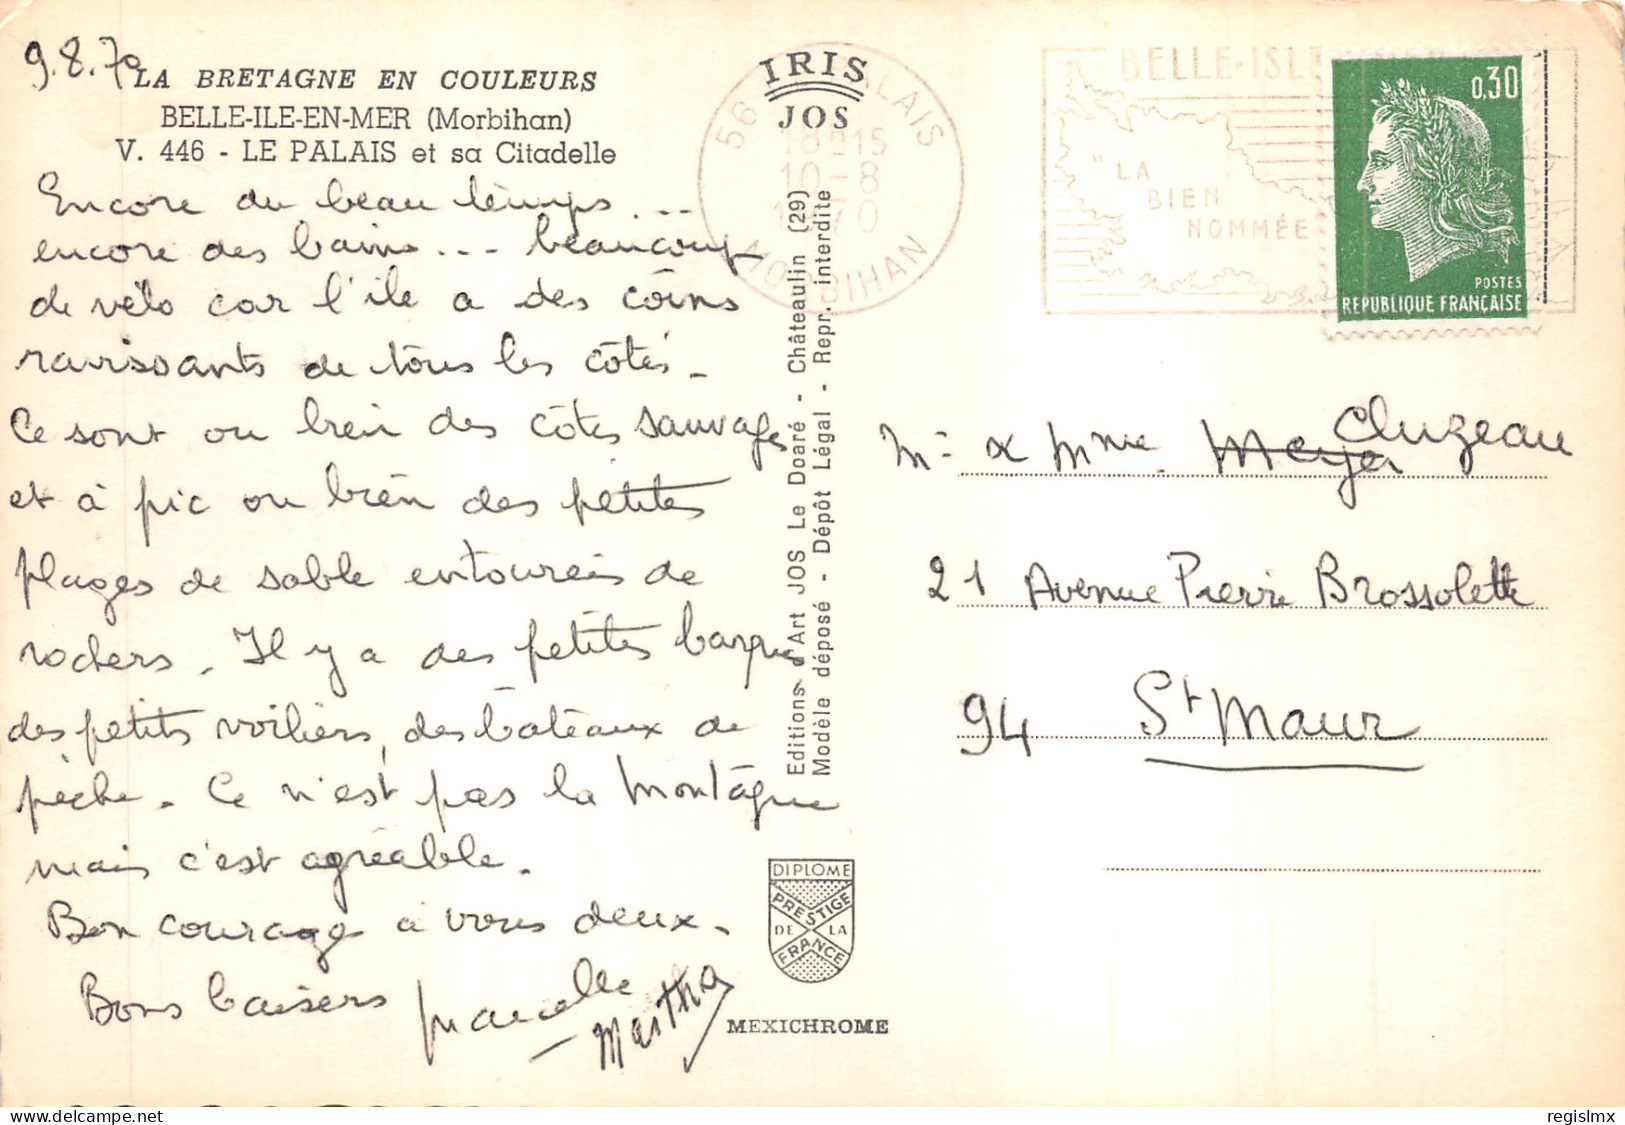 9.8.70
LA BRETAGNE EN COULEURS
BELLE-ILE-EN-MER (Morbihan)
V. 446 - LE PALAIS et sa Citadelle
Encore du beau temps...
encore des bains... beaucoup
de vélo car l'île a des coins
ravissants de tous les côtés.
Ce sont ou bien des côtes sauvages
et à pic ou bien des petites
plages de sable entourées de
rochers. Il y a des petites barques
des petits voiliers, des bateaux de
pêche. Ce n'est pas la montagne
mais c'est agréable.
Bon courage à vous deux.
Bons baisers Marcelle
Martha
IRIS
JOS
56 PALAIS
18H15
10-8
1970
MORBIHAN
Editions d'Art JOS Le Doaré - Châteaulin (29)
Modèle déposé - Dépôt Légal - Repr. interdite
DIPLOME
PRESTIGE
DE LA
FRANCE
MEXICHROME
BELLE-ISLE
"LA
BIEN
NOMMÉE
0,30
POSTES
REPUBLIQUE FRANÇAISE
Mr & Mme Meyer Cluzeau
21 Avenue Pierre Brossolette
94 St Maur
regislmx